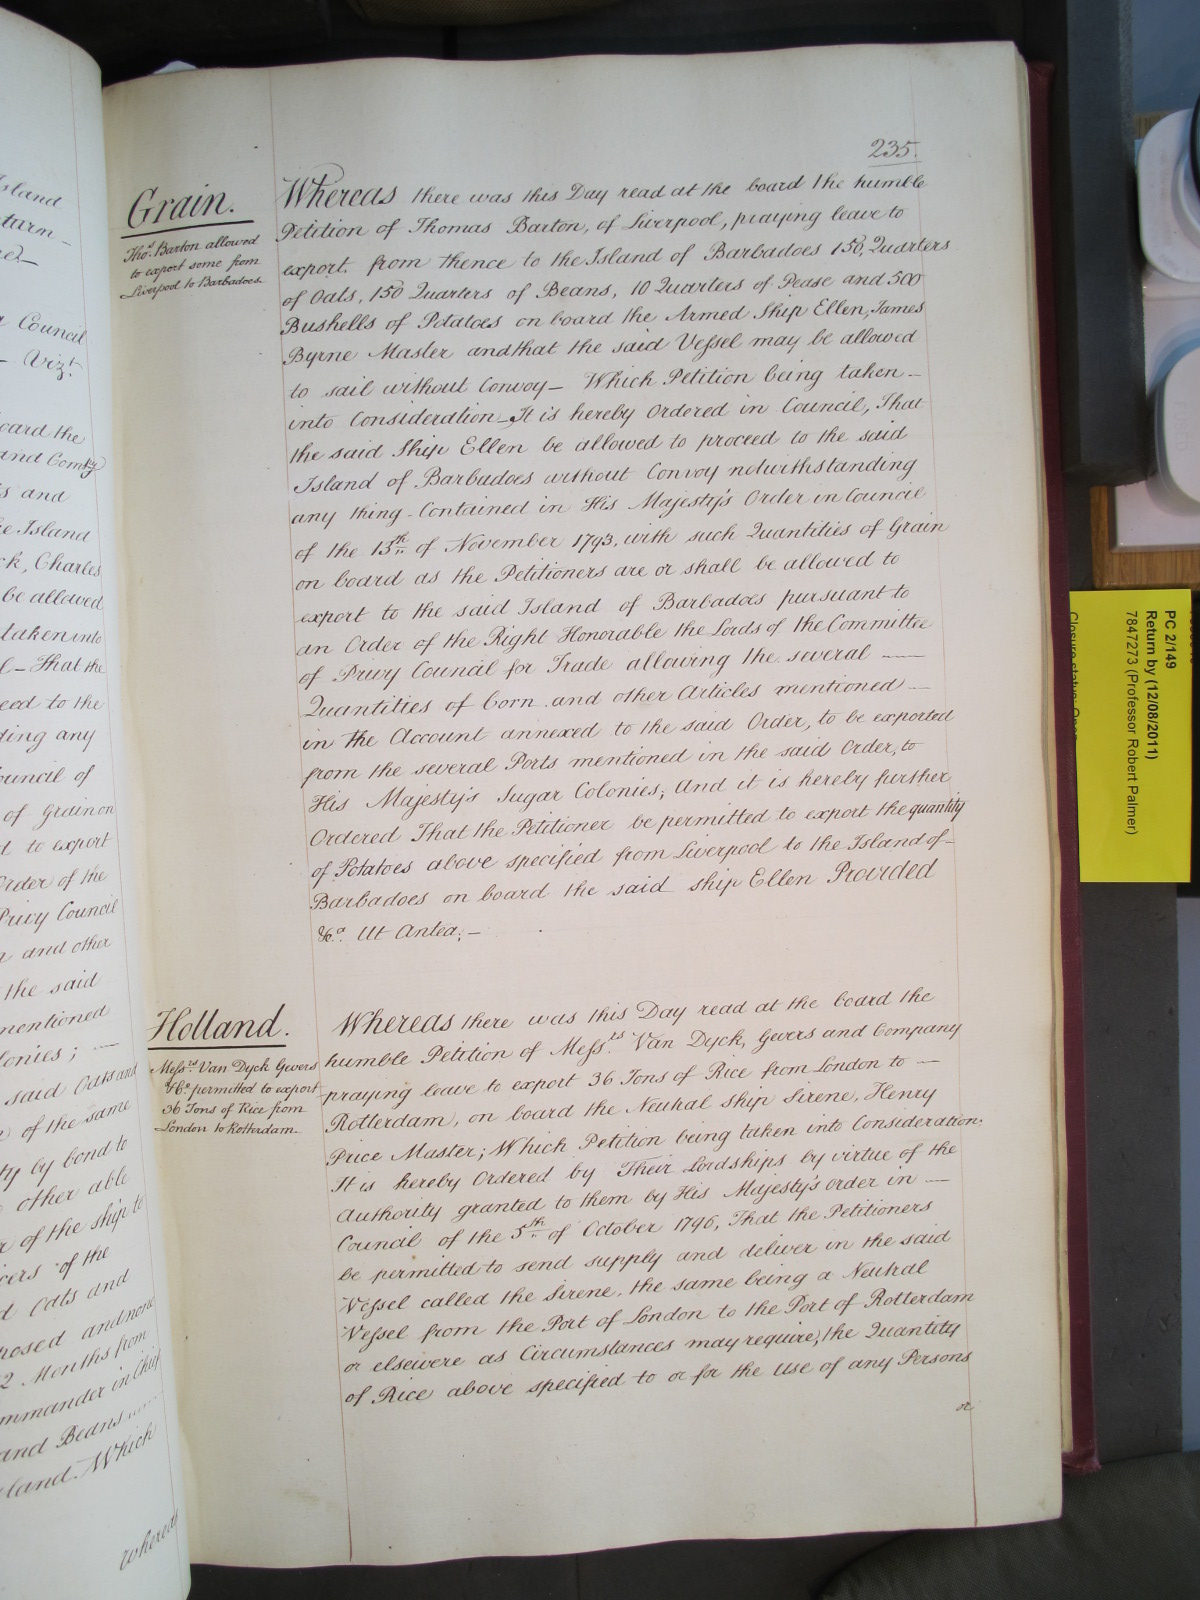 235.
Grain.
Thos. Barton allowed
to export some from
Liverpool to Barbadoes.
Whereas there was this Day read at the board the humble
Petition of Thomas Barton, of Liverpool, praying leave to
export from thence to the Island of Barbadoes 150 Quarters
of Oats, 150 Quarters of Beans, 10 Quarters of Pease and 500
Bushells of Potatoes on board the Armed Ship Ellen, James
Byrne Master and that the said Vessel may be allowed
to sail without Convoy— Which Petition being taken—
into Consideration—It is hereby Ordered in Council, That
the said Ship Ellen be allowed to proceed to the said
Island of Barbadoes without Convoy notwithstanding
any thing Contained in His Majesty's Order in Council
of the 15th of November 1793, with such Quantities of Grain
on board as the Petitioners are or shall be allowed to
export to the said Island of Barbadoes pursuant to
an Order of the Right Honorable the Lords of the Committee
of Privy Council for Trade allowing the several —
Quantities of Corn and other Articles mentioned —
in the Account annexed to the said Order, to be exported
from the several Ports mentioned in the said Order, to
His Majesty's Sugar Colonies; And it is hereby further
Ordered That the Petitioner be permitted to export the quantity
of Potatoes above specified from Liverpool to the Island of—
Barbadoes on board the said ship Ellen Provided
&ca. Ut Antea;—
Holland.
Messrs. Van Dyck Gevers
&Co. permitted to export
36 Tons of Rice from
London to Rotterdam.
Whereas there was this Day read at the board the
humble Petition of Messrs. Van Dyck, Gevers and Company
praying leave to export 36 Tons of Rice from London to —
Rotterdam, on board the Neutral ship Sirene, Henry
Price Master; Which Petition being taken into Consideration;
It is hereby Ordered by Their Lordships by virtue of the
Authority granted to them by His Majesty's order in —
Council of the 5th of October 1796, That the Petitioners
be permitted to send supply and deliver in the said
Vessel called the Sirene, the same being a Neutral
Vessel from the Port of London to the Port of Rotterdam
or elsewere as Circumstances may require, the Quantity
of Rice above specified to or for the use of any Persons
or
Island
Council
— Vizt.
board the
and Compy
and
Island
Charles
be allowed
taken into
— That the
to the
any
Council of
of Grain on
to export
Order of the
Privy Council
and other
the said
mentioned
Colonies; —
said Oats and
of the same
by bond to
other able
of the ship to
of the
Oats and
and none
2 Months from
Commander in Chief
and Beans
Which
Whereas
PC 2/149
Return by (12/08/2011)
7847273 (Professor Robert Palmer)